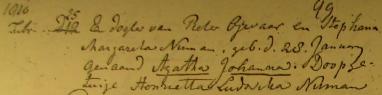 1816 25 99
Febr. D 19 Een dogter van Pieter Ojevaar en Stephana
Margareta Niman, geb. d. 28 January
genaamd Agatha Johanna. Doopge-
tuige Henrietta Ludovica Niman